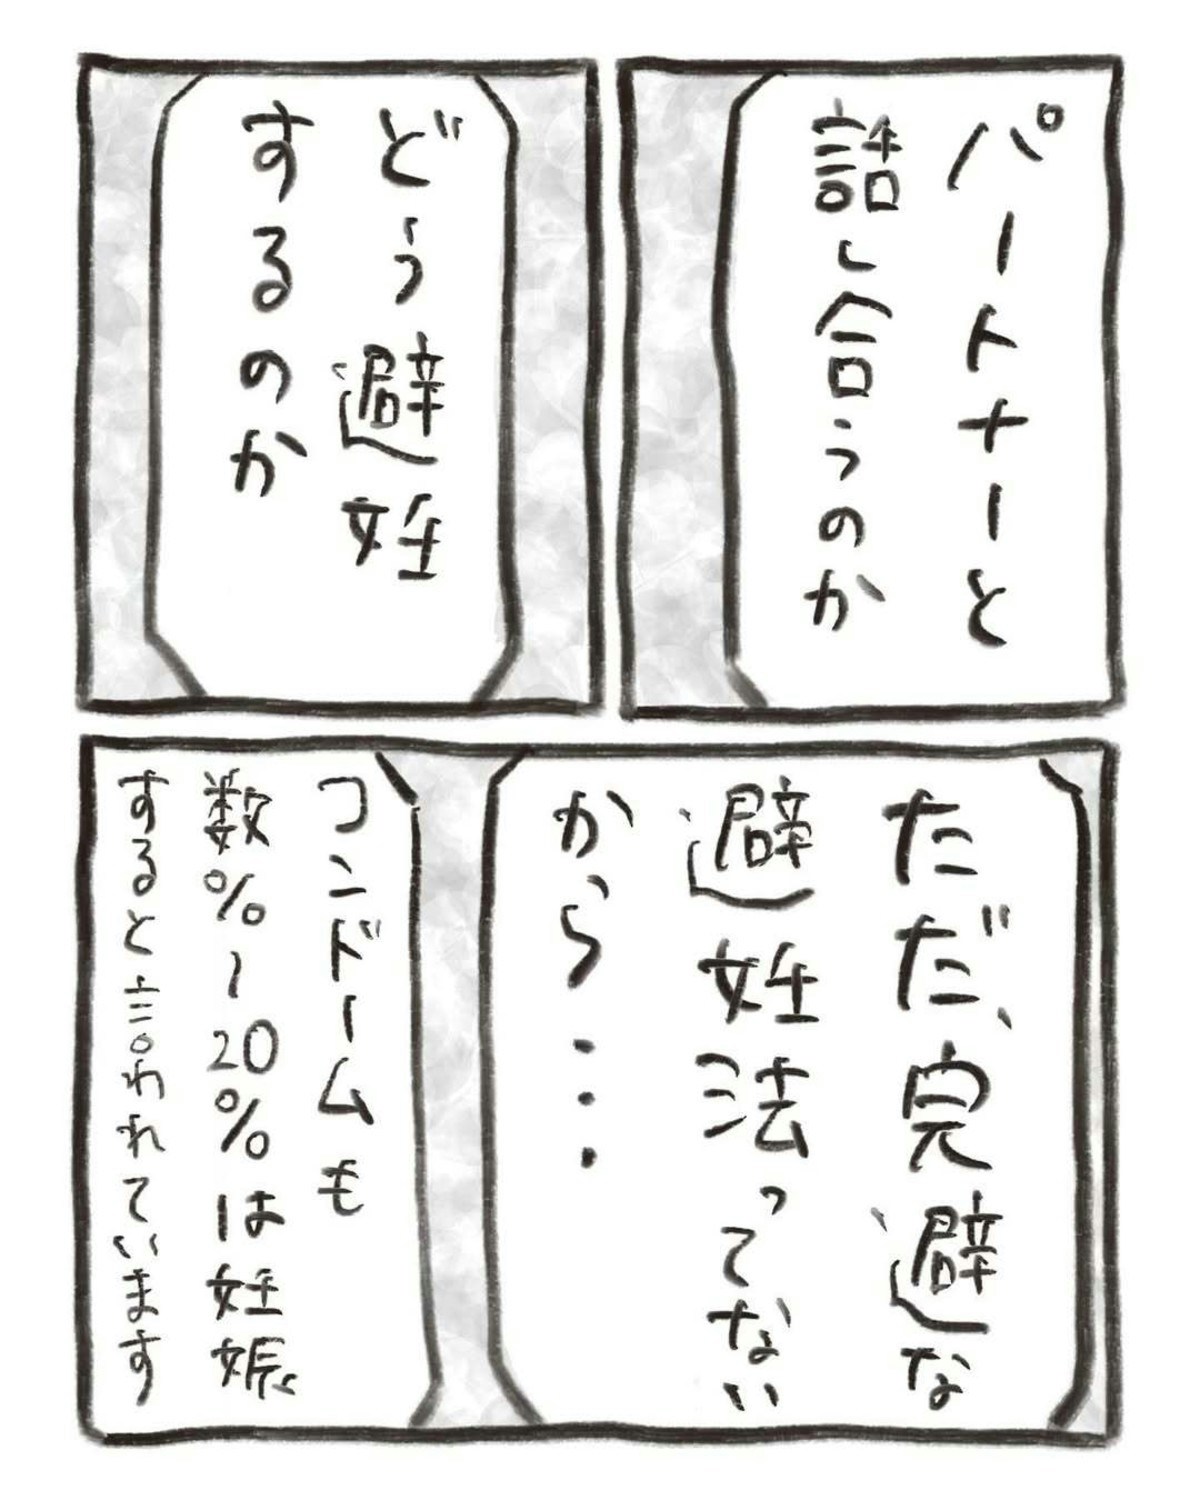 パートナーと
話し合うのか
どう避妊
するのか
ただ、完避な
避妊法ってない
から…
コンドームも
数%〜20%は妊娠
すると言われています